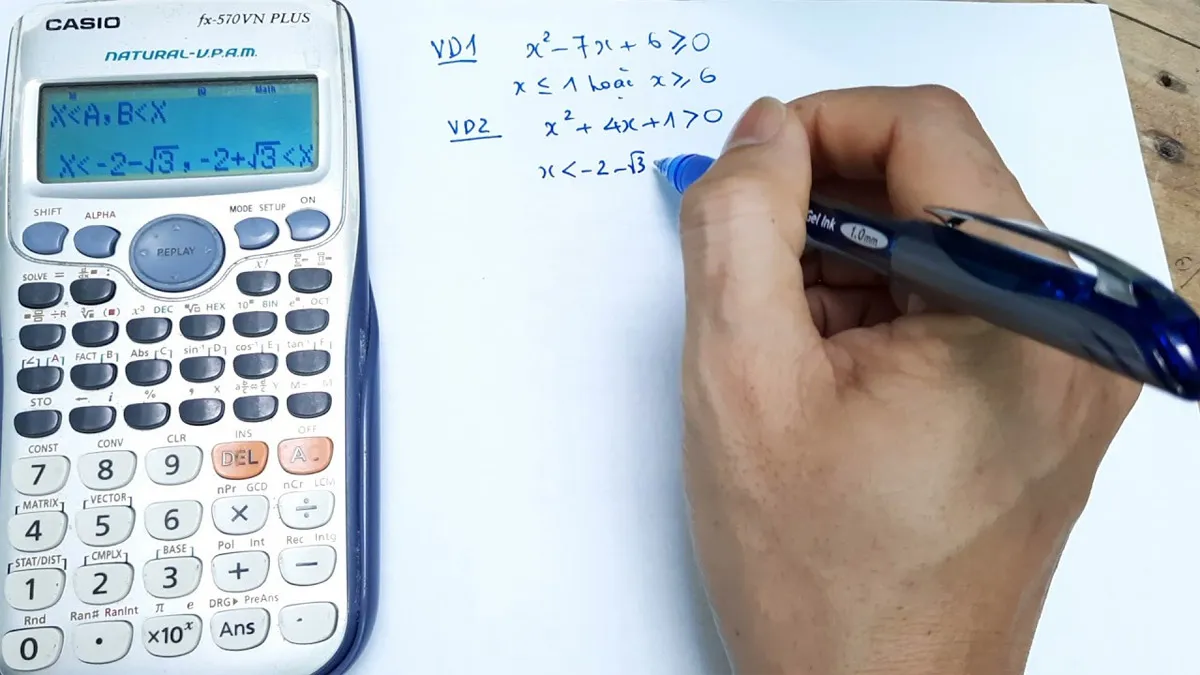 CASIO fx-570VN PLUS
NATURAL-V.P.A.M.
Math
X<A, B<X
X<-2-√3, -2+√3<X
SHIFT ALPHA MODE SETUP ON
REPLAY
SOLVE = : x!
÷R ³√ (■) x³ DEC ■√□ HEX 10■ BIN e■ OCT
[∠] [A] FACT [B] Abs [C] sin⁻¹ [D] cos⁻¹ [E] tan⁻¹ F
STO ← i % , X Y M- M
CONST CONV CLR INS OFF
7 8 9 DEL A
[MATRIX] [VECTOR] nPr GCD nCr LCM
4 5 6 × ÷
[STAT/DIST] [CMPLX] [BASE] Pol Int Rec Intg
1 2 3 + −
Rnd Ran# RanInt π e DRG▶ PreAns
0 • ×10ˣ Ans
VD1 x² - 7x + 6 ≥ 0
x ≤ 1 hoặc x ≥ 6
VD2 x² + 4x + 1 > 0
x < -2 - √3
Gel Ink 1.0mm